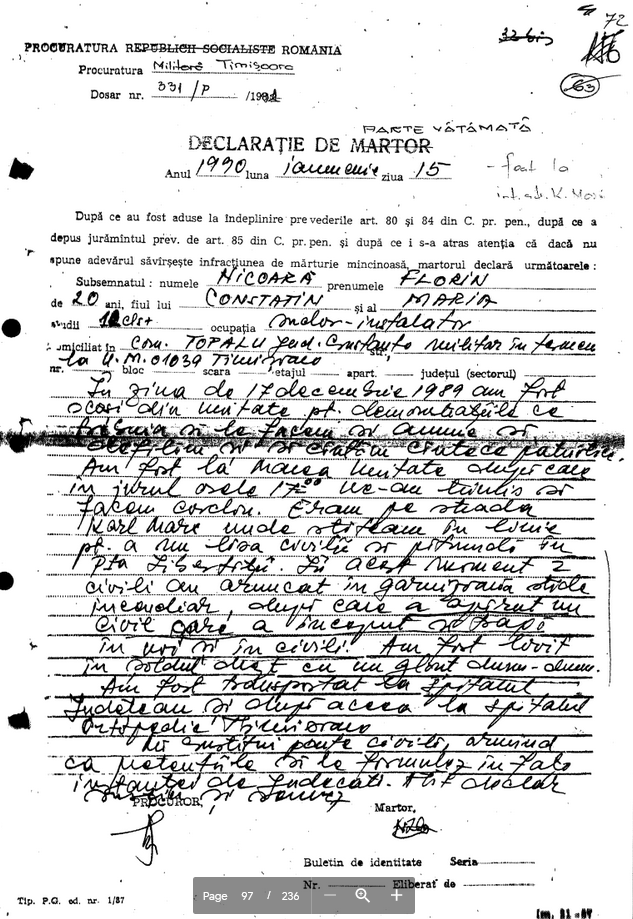 72
32 bis
63
PROCURATURA REPUBLICII SOCIALISTE ROMÂNIA
Procuratura Militară Timișoara
Dosar nr. 331/P /1991
PARTE VĂTĂMATĂ
DECLARAȚIE DE MARTOR
Anul 1990 luna ianuarie ziua 15
- fost la
După ce au fost aduse la îndeplinire prevederile art. 80 și 84 din C. pr. pen., după ce a
depus jurămîntul prev. de art. 85 din C. pr. pen. și după ce i s-a atras atenția că dacă nu
spune adevărul săvîrșește infracțiunea de mărturie mincinoasă, martorul declară următoarele:
Subsemnatul: numele NICOARĂ prenumele FLORIN
de 20 ani, fiul lui CONSTATIN și al MARIA
studii ocupația instalator
domiciliat în Com. TOPALU jud. Constanța str. militar în termen
la U.M. 01039 Timișoara
nr. bloc scara etajul apart. județul (sectorul)
În ziua de 17 decembrie 1989 am fost
scoși din unitate pt. demonstrațiile ce
trebuia să le facem cu arme să
defilăm și să cîntăm cîntece patriotice.
Am fost la Marea Unitate după care
în jurul orele 17⁰⁰ ne-au trimis să
facem cordon. Eram pe strada
Karl Marx unde stăteam în linie
pt. a nu lăsa civilii să pătrundă în
P-ța Libertății. În acest moment 2
civili au aruncat în garnizoană sticle
incendiar, după care a apărut un
civil care a început să tragă
în noi și în civili. Am fost lovit
în șoldul drept cu un glonț dum-dum.
Am fost transportat la spitalul
Județean și după aceea la spitalul
Ortopedie Timișoara
Mă constitui parte civilă, urmînd
ca pretențiile să le formulez în fața
instanței de judecată. Atît declar
susțin și semnez
PROCUROR,
Martor,
Buletin de identitate Seria
Nr. Eliberat de
Tip. P.G. ed. nr. 1/87
Page 97 / 236